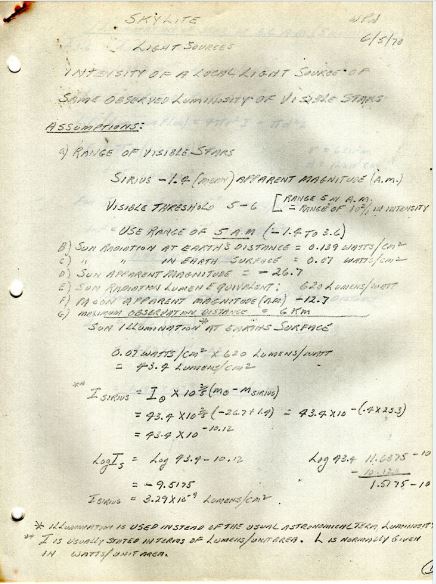 SKYLITE
6/5/70
LIGHT SOURCES
INTENSITY OF A LOCAL LIGHT SOURCE OF
SAME OBSERVED LUMINOSITY OF VISIBLE STARS
ASSUMPTIONS:
a) RANGE OF VISIBLE STARS
SIRIUS -1.4 (mean) APPARENT MAGNITUDE (A.M.)
VISIBLE THRESHOLD 5-6 [RANGE 5 IN A.M.
= RANGE OF 10² IN INTENSITY
USE RANGE OF 5 A.M (-1.4 TO 3.6)
B) SUN RADIATION AT EARTH'S DISTANCE = 0.139 WATTS/CM²
C) " " IN EARTH SURFACE = 0.07 WATTS/CM²
D) SUN APPARENT MAGNITUDE = -26.7
E) SUN RADIATION LUMEN EQUIVALENT: 620 LUMENS/WATT
F) MOON APPARENT MAGNITUDE (AM) -12.7
G) MAXIMUM OBSERVATION DISTANCE = 6 KM
SUN ILLUMINATION* AT EARTHS SURFACE
0.07 WATTS/CM² X 620 LUMENS/WATT
= 43.4 LUMENS/CM²
** I SIRIUS = I⊙ X 10^⅖(M⊙ - M SIRIUS)
= 43.4 X 10^⅖(-26.7+1.4) = 43.4 X 10^-(.4 X 25.3)
= 43.4 X 10^-10.12
LOG I_S = LOG 43.4 - 10.12
LOG 43.4 11.6375 - 10
- 10.120
1.5175 - 10
= -9.5175
I SIRIUS = 3.29 X 10^-9 LUMENS/CM²
* ILLUMINATION IS USED INSTEAD OF THE USUAL ASTRONOMICAL TERM LUMINOSITY
** I IS USUALLY STATED IN TERMS OF LUMENS/UNIT AREA. L IS NORMALLY GIVEN
IN WATTS/UNIT AREA.